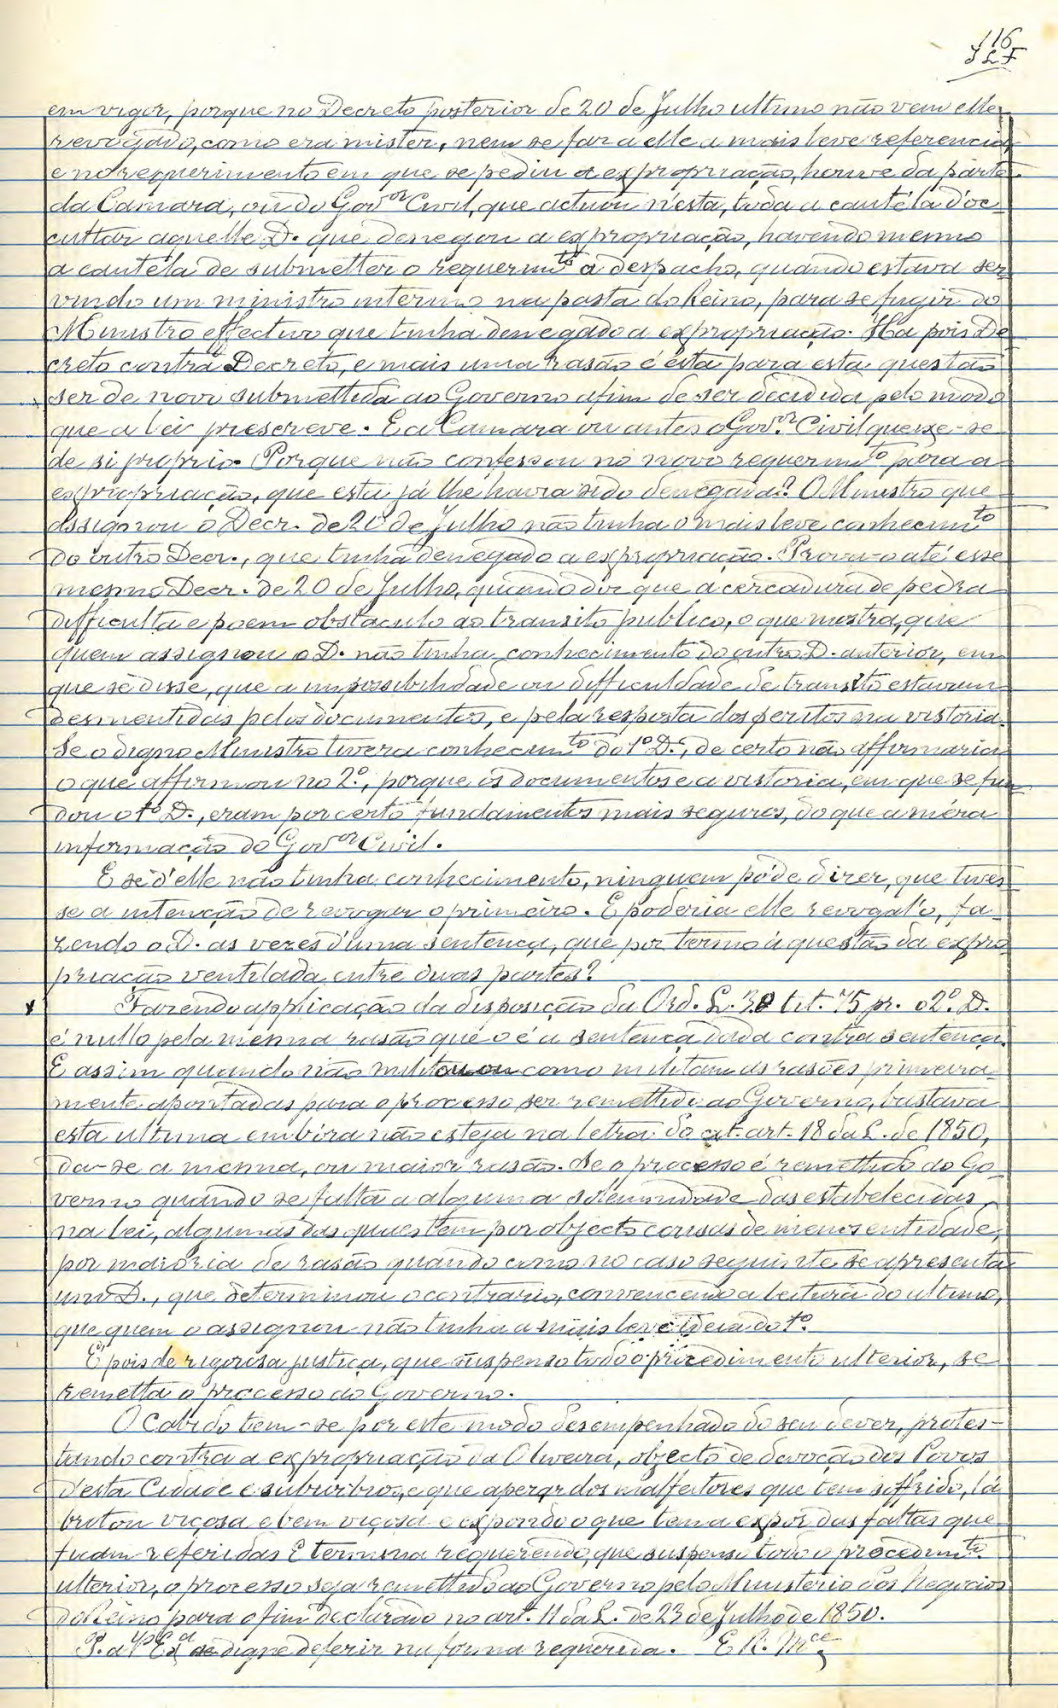 116
em vigor, porque no Decreto posterior de 20 de Julho ultimo não vem elle
revogado, como era mister, nem se faz a elle a mais leve referencia,
e no requerimento em que se pediu a expropriação, houve da parte
da Camara, ou do Gov.or Civil, que actuou n'esta, toda a cautéla d'oc-
cultar aquelle D. que denegou a expropriação, havendo mesmo
a cautéla de submetter o requerim.to a despacho, quando estava ser-
vindo um ministro interino na pasta do Reino, para se fugir do
Ministro effectivo que tinha denegado a expropriação. Ha pois De-
creto contra Decreto, e mais uma rasão é esta para esta questão
ser de novo submettida ao Governo afim de ser decidida pelo modo
que a lei prescreve. E a Camara ou antes o Gov.or Civil queixe-se
de si proprio. Porque não confessou no novo requerim.to para a
expropriação, que esta já lhe havia sido denegada? O Ministro que
assignou o Decr. de 20 de Julho não tinha o mais leve conhecim.to
do outro Decr., que tinha denegado a expropriação. Prova-o até esse
mesmo Decr. de 20 de Julho, quando diz que a cercadura de pedra
difficulta e poem obstaculo ao transito publico, o que mostra, que
quem assignou o D. não tinha conhecimento do outro D. anterior, em
que se disse, que a impossibilidade ou difficuldade de transito estavam
desmentidas pelos documentos, e pela resposta dos peritos na vistoria.
Se o digno Ministro tivera conhecim.to do 1.º D., de certo não affirmaria
o que affirmou no 2.º, porque os documentos e a vistoria, em que se fun-
dou o 1.º D., eram por certo fundamentos mais seguros, do que a méra
informação do Gov.or Civil.
E se d'elle não tinha conhecimento, ninguem póde dizer, que tives-
se a intenção de revogar o primeiro. E poderia elle revogal'o, fa-
zendo o D. as vezes d'uma sentença, que poz termo á questão da expro-
priação ventilada entre duas partes?
Fazendo applicação da disposição da Ord. L. 3º tit. 75 pr. o 2.º D.
é nullo pela mesma rasão que o é a sentença dada contra sentença.
E assim quando não como militam as rasões primeira-
mente apontadas para o processo ser remettido ao Governo, bastava
esta ultima embora não esteja na letra do cit. art. 18 da L. de 1850,
da-se a mesma, ou maior rasão. Se o processo é remettido ao Go-
verno quando se falta a alguma solemnidade das estabelecidas
na lei, algumas das quaes tem por objecto cousas de menos entidade,
por maioria de rasão quando como no caso seguinte se apresenta
um D., que determinou o contrario, convencendo a leitura do ultimo,
que quem o assignou não tinha a mais leve ideia do 1.º
É pois de rigorosa justiça, que suspenso todo o procedimento ulterior, se
remetta o processo ao Governo.
O Cabido tem-se por este modo desempenhado do seu dever, protes-
tando contra a expropriação da Oliveira, objecto de devoção dos Povos
d'esta Cidade e suburbios, e que apezar dos malfeitores que tem soffrido, lá
brotou viçosa e bem viçosa e expondo o que tem a expor das faltas que
ficam referidas E termina requerendo, que suspenso todo o procedim.to
ulterior, o processo seja remettido ao Governo pelo Ministerio dos Negocios
do Reino para o fim declarado no art. 11 da L. de 23 de Julho de 1850.
P. a V. Ex.ª se digne deferir na forma requerida. E. R. M.ce